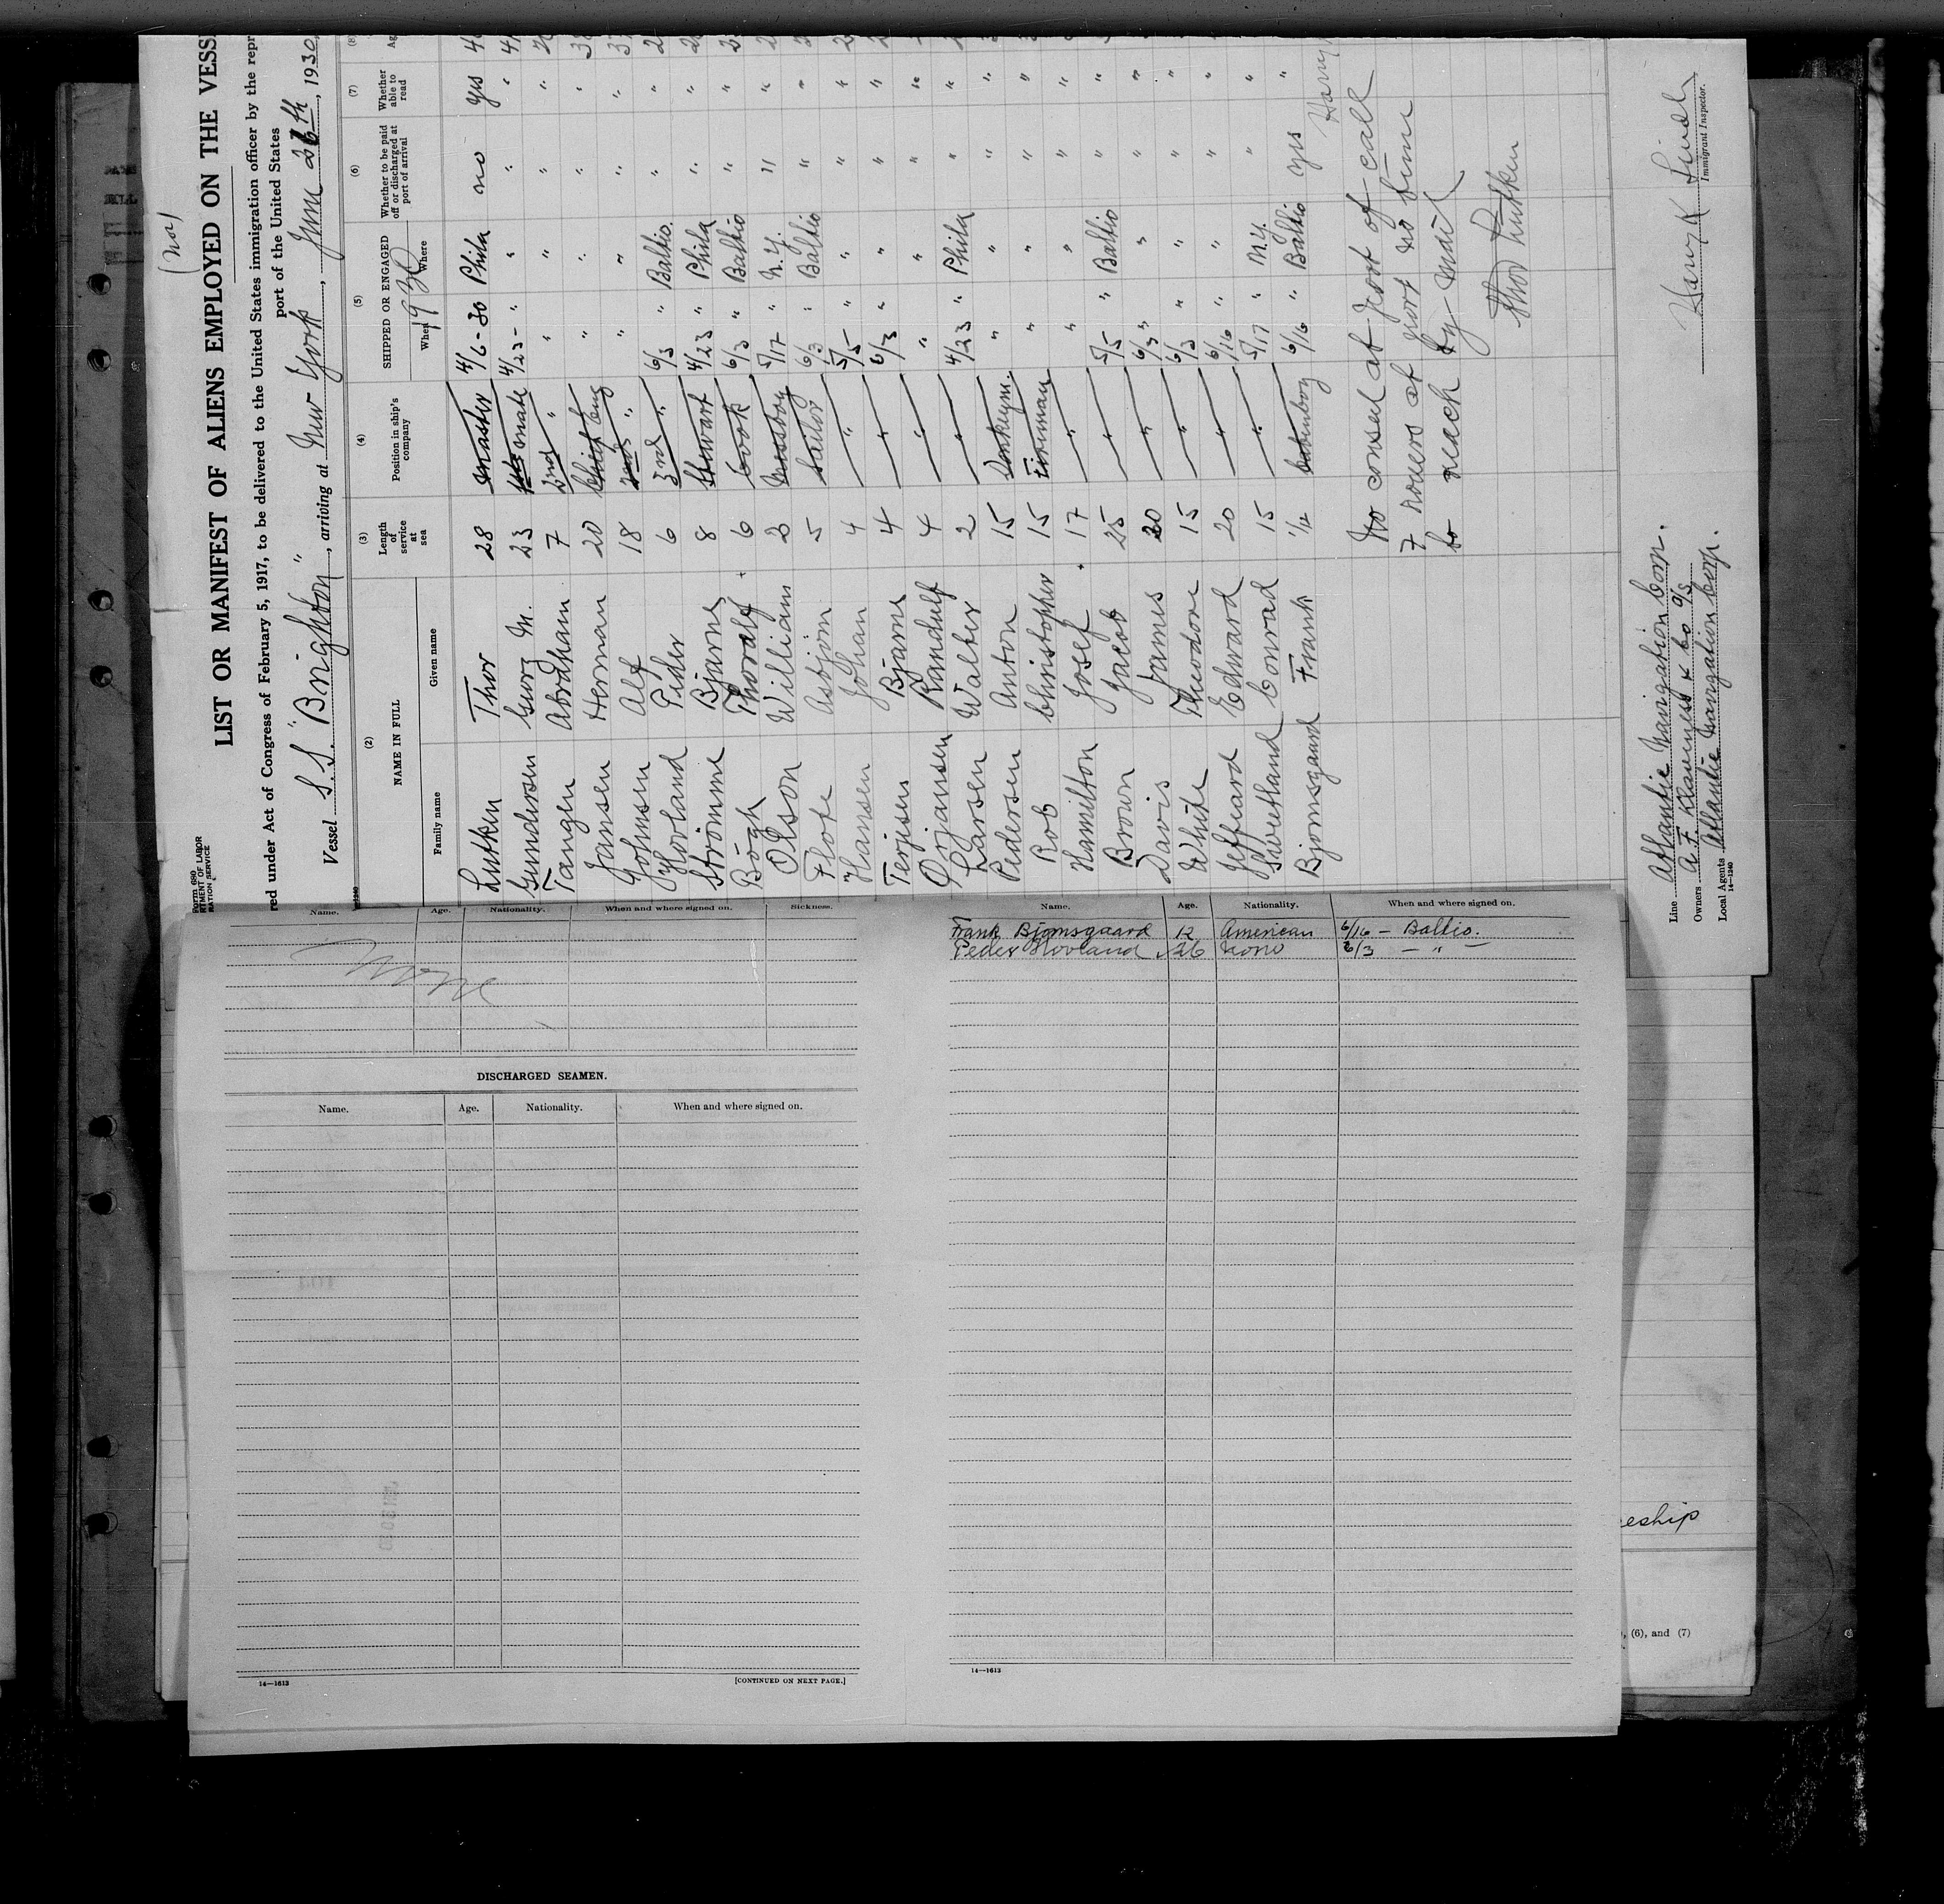 Form 680
LIST OR MANIFEST OF ALIENS EMPLOYED ON THE VESS
red under Act of Congress of February 5, 1917, to be delivered to the United States immigration officer by the repr
port of the United States
Vessel S.S. "Brighton", arriving at New York, June 26th, 1930
(2) (3) (4) (5) (6) (7) (8)
NAME IN FULL Length of service at sea Position in ship's company SHIPPED OR ENGAGED Whether to be paid off or discharged at port of arrival Whether able to read Ag
Family name Given name When 1930 Where
Lutken Thor 28 Master 4/6-30 Phila no yes 4
Gundersen Georg M. 23 mate 4/23- " " " " 4
Tangen Abraham 7 2nd " " " " "
Jansen Herman 20 Chief Eng " " " " 3
Johnsen Alf 18 2nd " " " " " 3
Hovland Peder 6 3rd " 6/3 " Baltio. " " 2
Strömme Bjarne 8 Stewart 4/23 " Phila " " 2
Bögh Thoralf 6 Cook 6/3 " Baltio " " 2
Olson William 3 Messboy 5/17 " N.Y. " " 2
Flote Asbjörn 5 Sailor 6/3 " Baltio " "
Hansen Johan 4 " 5/5 " " " " 2
Terjsen Bjarne 4 " 6/3 " " " "
Örjansen Randulf 4 " " " " "
Larsen Walter 2 " 4/23 " Phila " "
Pedersen Anton 15 Donkeym. " " " "
Rob Christopher 15 Fireman " " " "
Hamilton Josef 17 " " " " "
Brown Jacob 25 " 5/5 " Baltio " "
Davis James 20 " 6/3 " " " "
White Theodore 15 " 6/3 " " " "
Jeffeard Edward 20 " 6/16 " " " "
Swetland Conrad 15 " 5/17 " N.Y. " "
Bjornsgaard Frank 1/12 Cabinboy 6/16 " Baltio yes "
No consel at port of call
7 houers at port no time
to reach by mail
Thor Lutken
Line Atlantic Navigation Corp.
Owners A F Klaveness & Co A/S
Local Agents Atlantic Navigation Corp.
14-1240
Harry K
Immigrant Inspector.
Name. Age. Nationality. When and where signed on. Sickness.
None
DISCHARGED SEAMEN.
Name. Age. Nationality. When and where signed on.
14—1613
[CONTINUED ON NEXT PAGE.]
Name. Age. Nationality. When and where signed on.
Frank Bjornsgaard 12 American 6/16 - Baltio.
Peder Hovland 26 Norw 6/3 - " -
14—1613
eship
, (6), and (7)